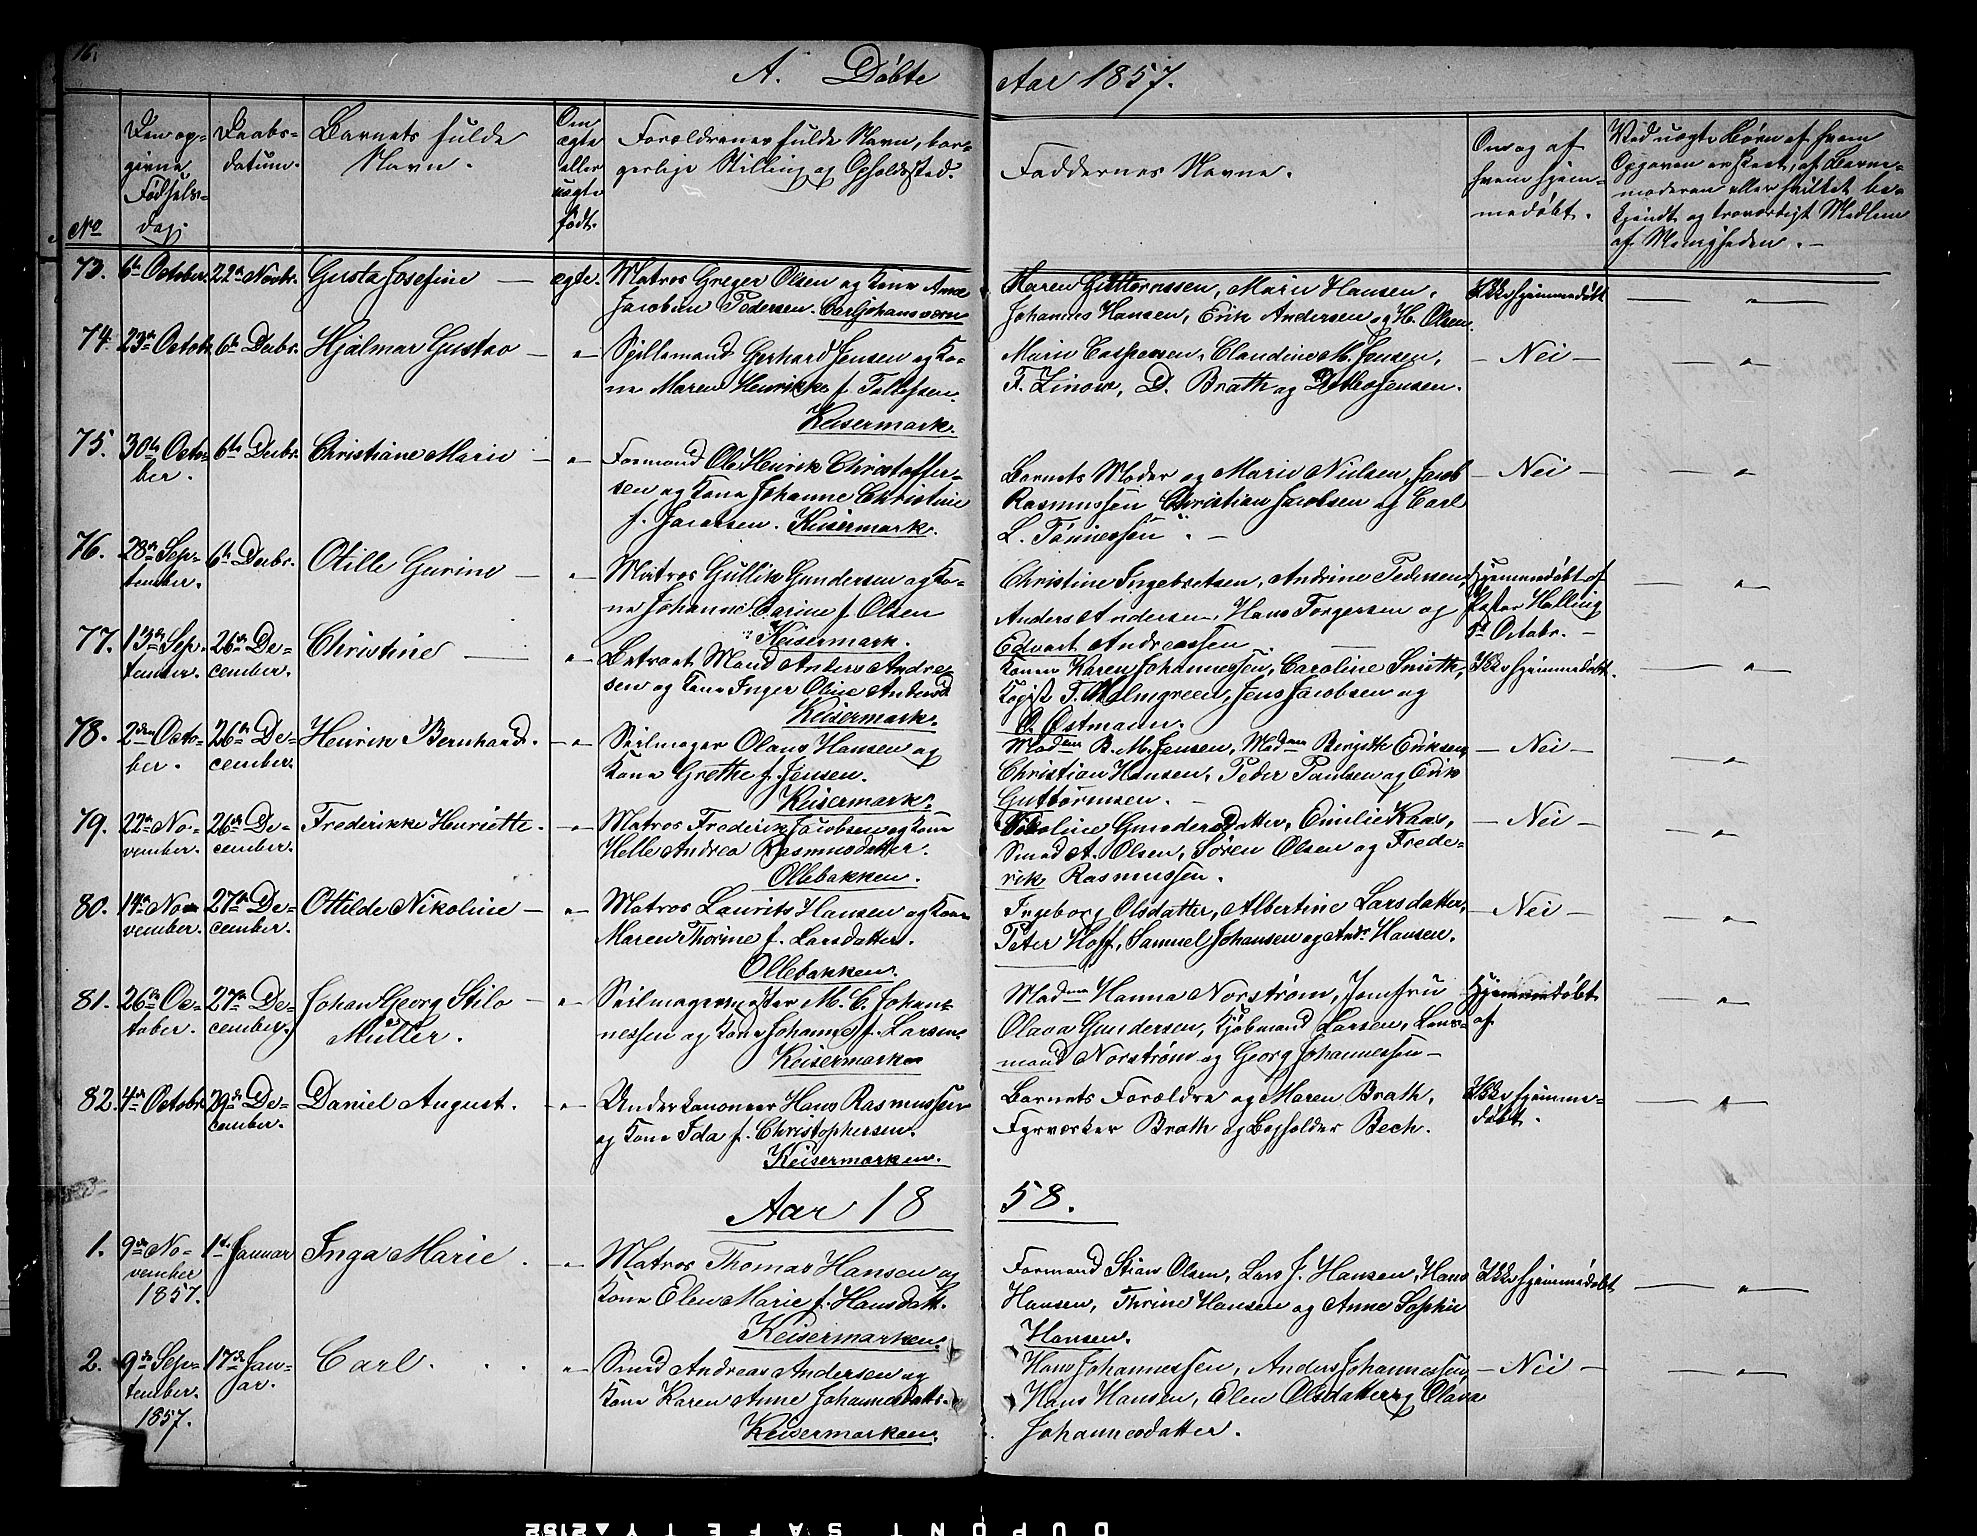 16.
A. Døbte
Aar 1857.
No
Den op-
givne
Fødsels-
dag.
Daabs-
datum.
Barnets fulde
Navn.
Om
ægte
eller
uægte
født.
Forældrenes fulde Navn, bor-
gerlige Stilling og Opholdssted.
Faddernes Navne.
Om og af
hvem hjem-
medøbt.
Ved uægte Børn af hvem
Opgaven er skeet, af Barne-
moderen eller hvilket be-
kjendt og troværdigt Medlem
af Menigheden. —
73. 6te October. 22de Novbr. Gusta Josefine — ægte. Matros Greger Olsen og Kone Anne
Jacobine Pedersen. Carljohansværn
Maren Guttormssen, Marie Hansen,
Johannes Hansen, Erik Andersen og H. Olsen.
Ikke hjemmedøbt
74. 23de Octobr. 6te Decbr. Hjalmar Gustav — " — Spillemand Gerhard Jensen og Ko-
ne Maren Henrikke f. Tollefsen.
Keisermark.
Marie Caspersen, Claudine M. Jensen,
F. Linow, D. Brath og Ditlev Jensen.
— Nei —
75. 30te Octo-
ber. 6te Decbr. Christiane Marie — " — Formand Ole Henrik Christoffer-
sen og Kone Johanne Christine
f. Jacobsen. Keisermark.
Barnets Moder og Marie Nielsen, Jacob
Rasmussen Christian Jacobsen og Carl
L. Tønnessen. —
— Nei —
76. 28de Sep-
tember. 6te Decbr. Otille Gurine — " — Matros Gullik Gundersen og Ko-
ne Johanne Carine f. Olsen
Keisermark.
Christine Ingebretsen, Andrine Pedersen,
Anders Andersen, Hans Torgersen og
Edvart Andreassen.
Hjemmedøbt af
Pastor Halling
Octobr. —
77. 13de Sep-
tember. 26de De-
cember. Christine — " — Betroet Mand Anders Andre-
sen og Kone Inger Oline Andersd
Keisermark.
Konen Karen Johannessen, Caroline Smith,
T. Malmgreen, Jens Jacobsen og
O. Østmann.
Ikke hjemmedøbt.
78. 2den Octo-
ber. 26de De-
cember. Henrik Bernhard. — " — Seilmager Olaus Hansen og
Kone Grethe f. Jensen.
Keisermark.
Madme B. M. Jensen, Madme Birgithe Eriksen,
Christian Hansen, Peder Paulsen og Erik
Guttormsen. —
— Nei —
79. 22de No-
vember. 26de De-
cember. Frederikke Henriette. — " — Matros Frederik Jacobsen og Kone
Helle Andrea Rasmusdatter.
Ollebakken.
Nikoline Gundersdatter, Emilie Kaas,
Smed A. Olsen, Søren Olsen og Frede-
rik Rasmussen.
— Nei —
80. 14de No-
vember. 27de De-
cember. Ottilde Nikoline — " — Matros Laurits Hansen og Kone
Maren Thorine f. Larsdatter.
Ollebakken.
Ingeborg Olsdatter, Albertine Larsdatter,
Peter Hoff, Samuel Johansen og Andr. Hansen.
— Nei —
81. 26de Oc-
tober. 27de De-
cember. Johan Georg Stilo
Müller. — " — Seilmagermester M. C. Johan-
nessen og Kone Johanne f. Larsen.
Keisermarken
Madme Hanna Norstrøm, Jomfru
Olava Gundersen, Kjøbmand Larsen,
mand Norstrøm og Georg Johannessen —
Hjemmedøbt
af
82. 4de Octobr. 29de De-
cember. Daniel August. — " — Underkanoneer Hans Rasmussen
og Kone Ida f. Christophersen.
Keisermarken.
Barnets Forældre og Maren Brath,
Fyrværker Brath og Bogholder Bech.
Ikke hjemme-
døbt.
Aar 18
58.
1. 9de No-
vember
1857. 1ste Januar Inga Marie. — " — Matros Thomas Hansen og
Kone Elen Marie f. Hansdatt.
Keisermarken.
Formand Stian Olsen, Lars J. Hansen, Hans
Hansen, Thrine Hansen og Anne Sophie
Hansen.
Ikke hjemmedøbt
2. 9de Sep-
tember
1857. 17de Jan-
ar. Carl. . . " — Smed Andreas Andersen og
Kone Karen Anne Johannesdatt.
Keisermarken.
Hans Johannessen, Anders Johannessen,
Hans Hansen, Elen Olsdatter og Olava
Johannesdatter.
— Nei —
DUPONT SAFETY 2152